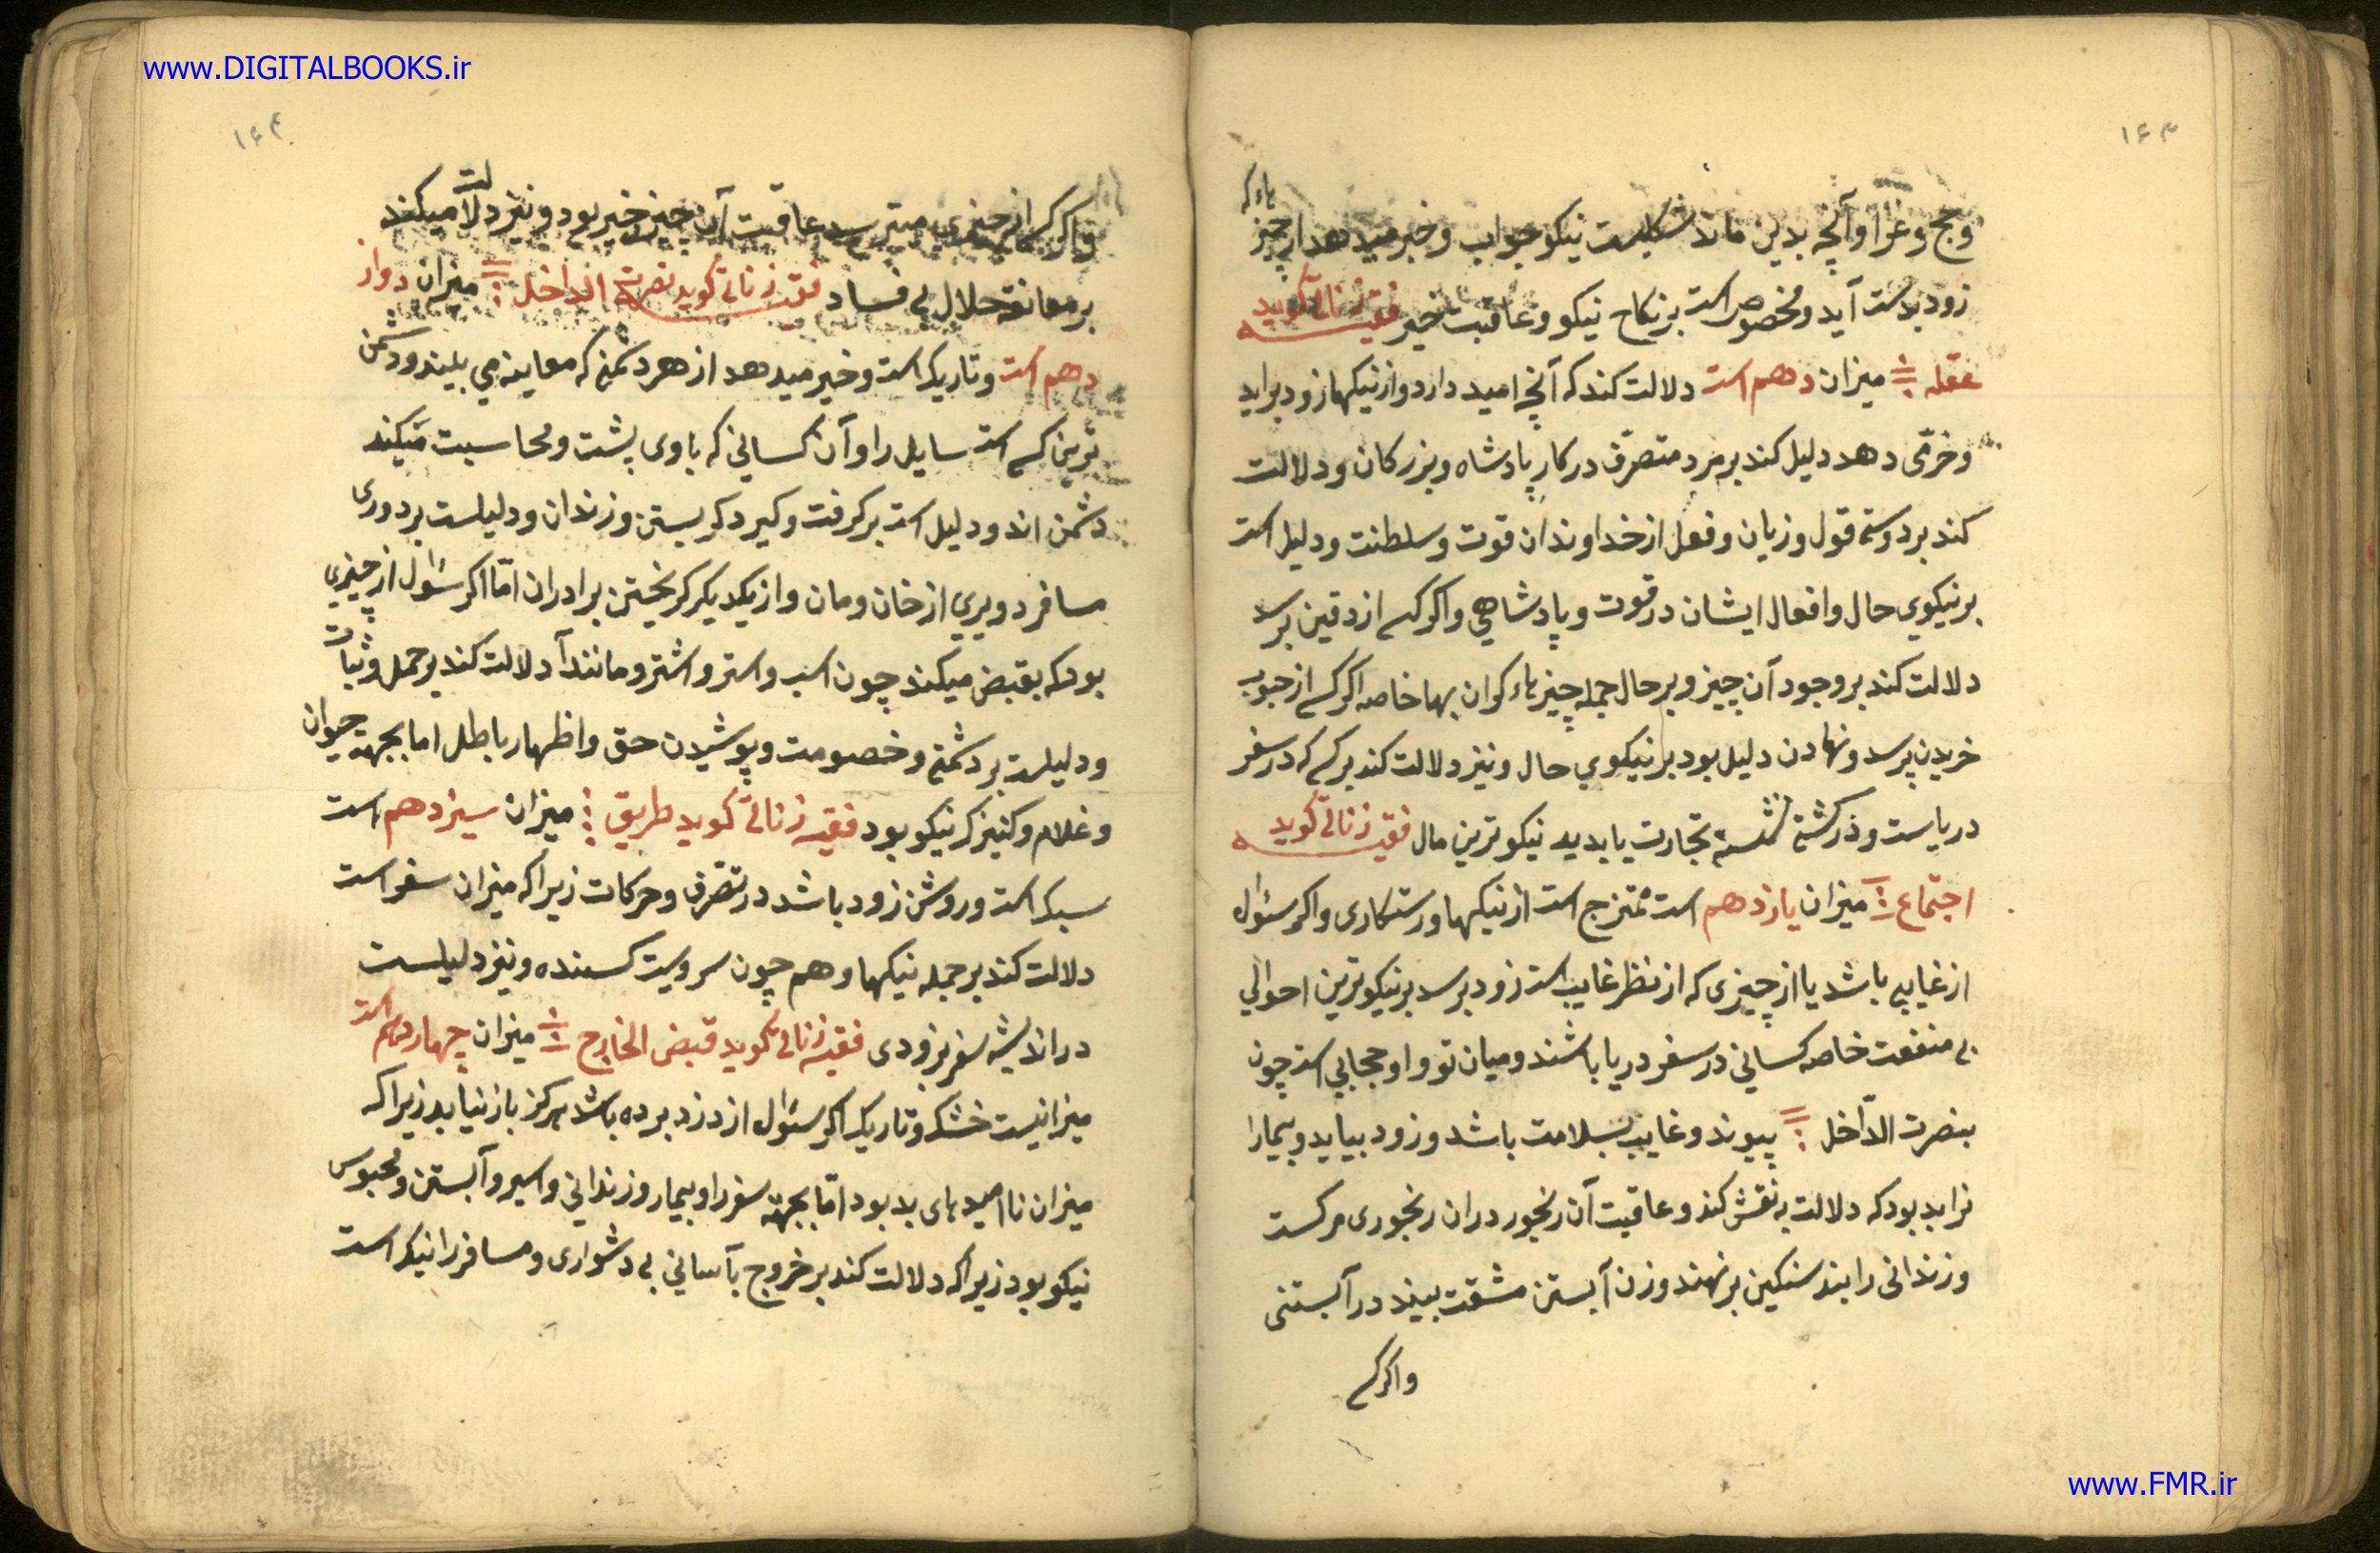 www.DIGITALBOOKS.ir
۱۶۳
وحج وغزا وآنچه بدین ماند شکلیست نیکو جواب وخبر میدهد از چیزهاء که
زود بدست آید ومخصوص است بر نکاح نیکو وعاقبت بخیر فقیه زناتی گوید
عقله میزان دهم است دلالت کند که آنچه امید دارد واز نیکیها زود براید
وخرّمی دهد دلیل کند بر مرد متصرّف در کار پادشاه وبزرکان ودلالت
کند بر دوستی قول وزبان وفعل از خداوندان قوت وسلطنت ودلیل است
بر نیکوی حال وافعال ایشان در قوت وپادشاهی واکر کسی از دفین پرسد
دلالت کند بر وجود آن چیز وبر حال جمله چیزهاء کران بها خاصه اکر کسی از حبوب
خریدن پرسد ونهادن دلیل بود بر نیکوی حال ونیز دلالت کند بر کسی که در سفر
دریاست ودر کشتی نشسته تجارت یا بدید نیکوترین مال فقیه زناتی گوید
اجتماع میزان یازدهم است ممتزج است از نیکیها ورستکاری واکر سئوال
از غایبی باشد یا از چیزی که از نظر غایب است زود برسد بر نیکوترین احوالی
بی منفعت خاصه کسانی در سفر دریا باشند ومیان تو واو حجابی است چون
بنصرت الدّاخل پیوند وغایب بسلامت باشد وزود بیاید وبیمارا
نرا بد بود که دلالت به نقش کند وعاقبت آن رنجور دران رنجوری مرکست
وزندانی را بند سنکین بر نهند وزن آبستن مشقت بیند در آبستنی
واکر کسی
۱۶۴
واکر کسی از چیزی میترسد عاقبت آن چیز خیر بود ونیز دلالت میکند
بر معانقه حلال بی فساد فقیه زناتی گوید نصرة الداخل میزان دواز
دهم است وتاریک است وخبر میدهد از هر دشمنی که معاینه می بیند ودشمن
ترین کسی است سایل را وآن کسانی که با وی پشت ومحاسبت میکند
دشمن اند ودلیل است بر کرفت وکیر دکر بستن وزندان ودلیلست بر دوری
مسافر ودیری از خان ومان واز یکدیکر کریختن برادران امّا اکر سئوال از چیزی
بود که بقبض میکند چون اسب واستر واشتر ومانند آن دلالت کند بر حمل وثبات
ودلیلست بر دشمنی وخصومت وپوشیدن حق واظهار باطل اما بجهة حیوان
وغلام وکنیزک نیکو بود فقیه زناتی گوید طریق میزان سیزدهم است
سبک است وروشن زود باشد در تصّرف وحرکات زیرا که میزان سفر است
دلالت کند بر جمله نیکیها وهم چون سرویست کسنده ونیز دلیلست
در اندیشه سفر بزودی فقیه زناتی گوید قبض الخارج میزان چهاردهم است
میزانیست خشک وتاریک اکر سئوال از دزد برده باشد هرکز باز نیاید زیرا که
میزان ناامیدهای بد بود امّا بجهة سفر را وبیمار وزندانی واسیر وآبستن ومحبوس
نیکو بود زیرا که دلالت کند بر خروج بآسانی بی دشواری ومسافر را نیک است
www.FMR.ir